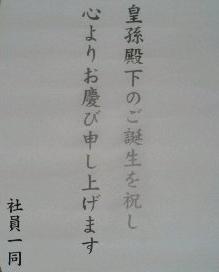 皇孫殿下のご誕生を祝し
心よりお慶び申し上げます
社員一同